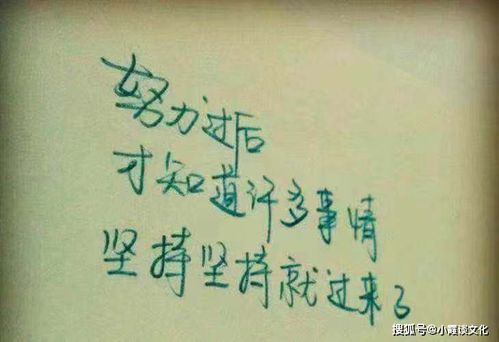 努力过后
才知道许多事情
坚持坚持就过来了
搜狐号@小霞谈文化